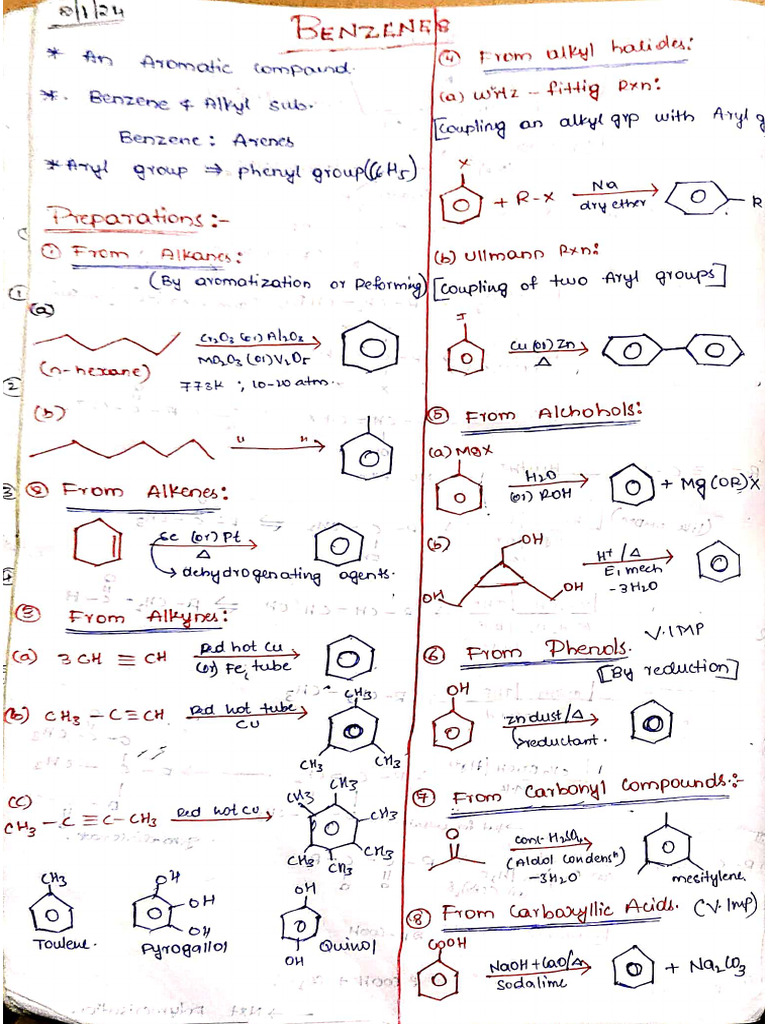 8/1/24
BENZENES
* An Aromatic compound.
*. Benzene & Alkyl sub.
Benzene : Arenes
* Aryl group ⇒ phenyl group (C6H5)
Preparations :-
① From Alkanes:
(By aromatization or Reforming)
(a)
(n-hexane)
Cr2O3 (or) Al2O3
Mo2O3 (or) V2O5
773K ; 10-20 atm..
(b)
〃 〃
② From Alkenes:
Se (or) Pt
Δ
→ dehydrogenating agents.
③ From Alkynes:
(a) 3CH ≡ CH
Red hot Cu
(or) Fe, tube
(b) CH3 - C ≡ CH
Red hot tube
Cu
CH3
CH3
CH3
(c)
CH3 - C ≡ C - CH3
Red hot Cu
CH3
CH3
CH3
CH3
CH3
CH3
CH3
Toulene.
OH
OH
OH
Pyrogallol
OH
OH
Quinol
④ From alkyl halides:
(a) Wirtz - fittig Rxn:
[Coupling an alkyl grp with Aryl g
X
+ R-X
Na
dry ether
R
(b) Ullmann Rxn:
[Coupling of two Aryl groups]
I
Cu (or) Zn
Δ
⑤ From Alchohols:
(a) MgX
H2O
(or) ROH
+ Mg(OR)X
(b)
OH
OH
OH
H+ / Δ
E1 mech
-3H2O
⑥ From Phenols. V.IMP
[By reduction]
OH
Zn dust / Δ
→ reductant.
⑦ From Carbonyl Compounds:-
O
conc-H2SO4
(Aldol condensn)
-3H2O
mesitylene.
⑧ From Carboxyllic Acids. (V.Imp)
COOH
NaOH + CaO / Δ
Sodalime
+ Na2CO3